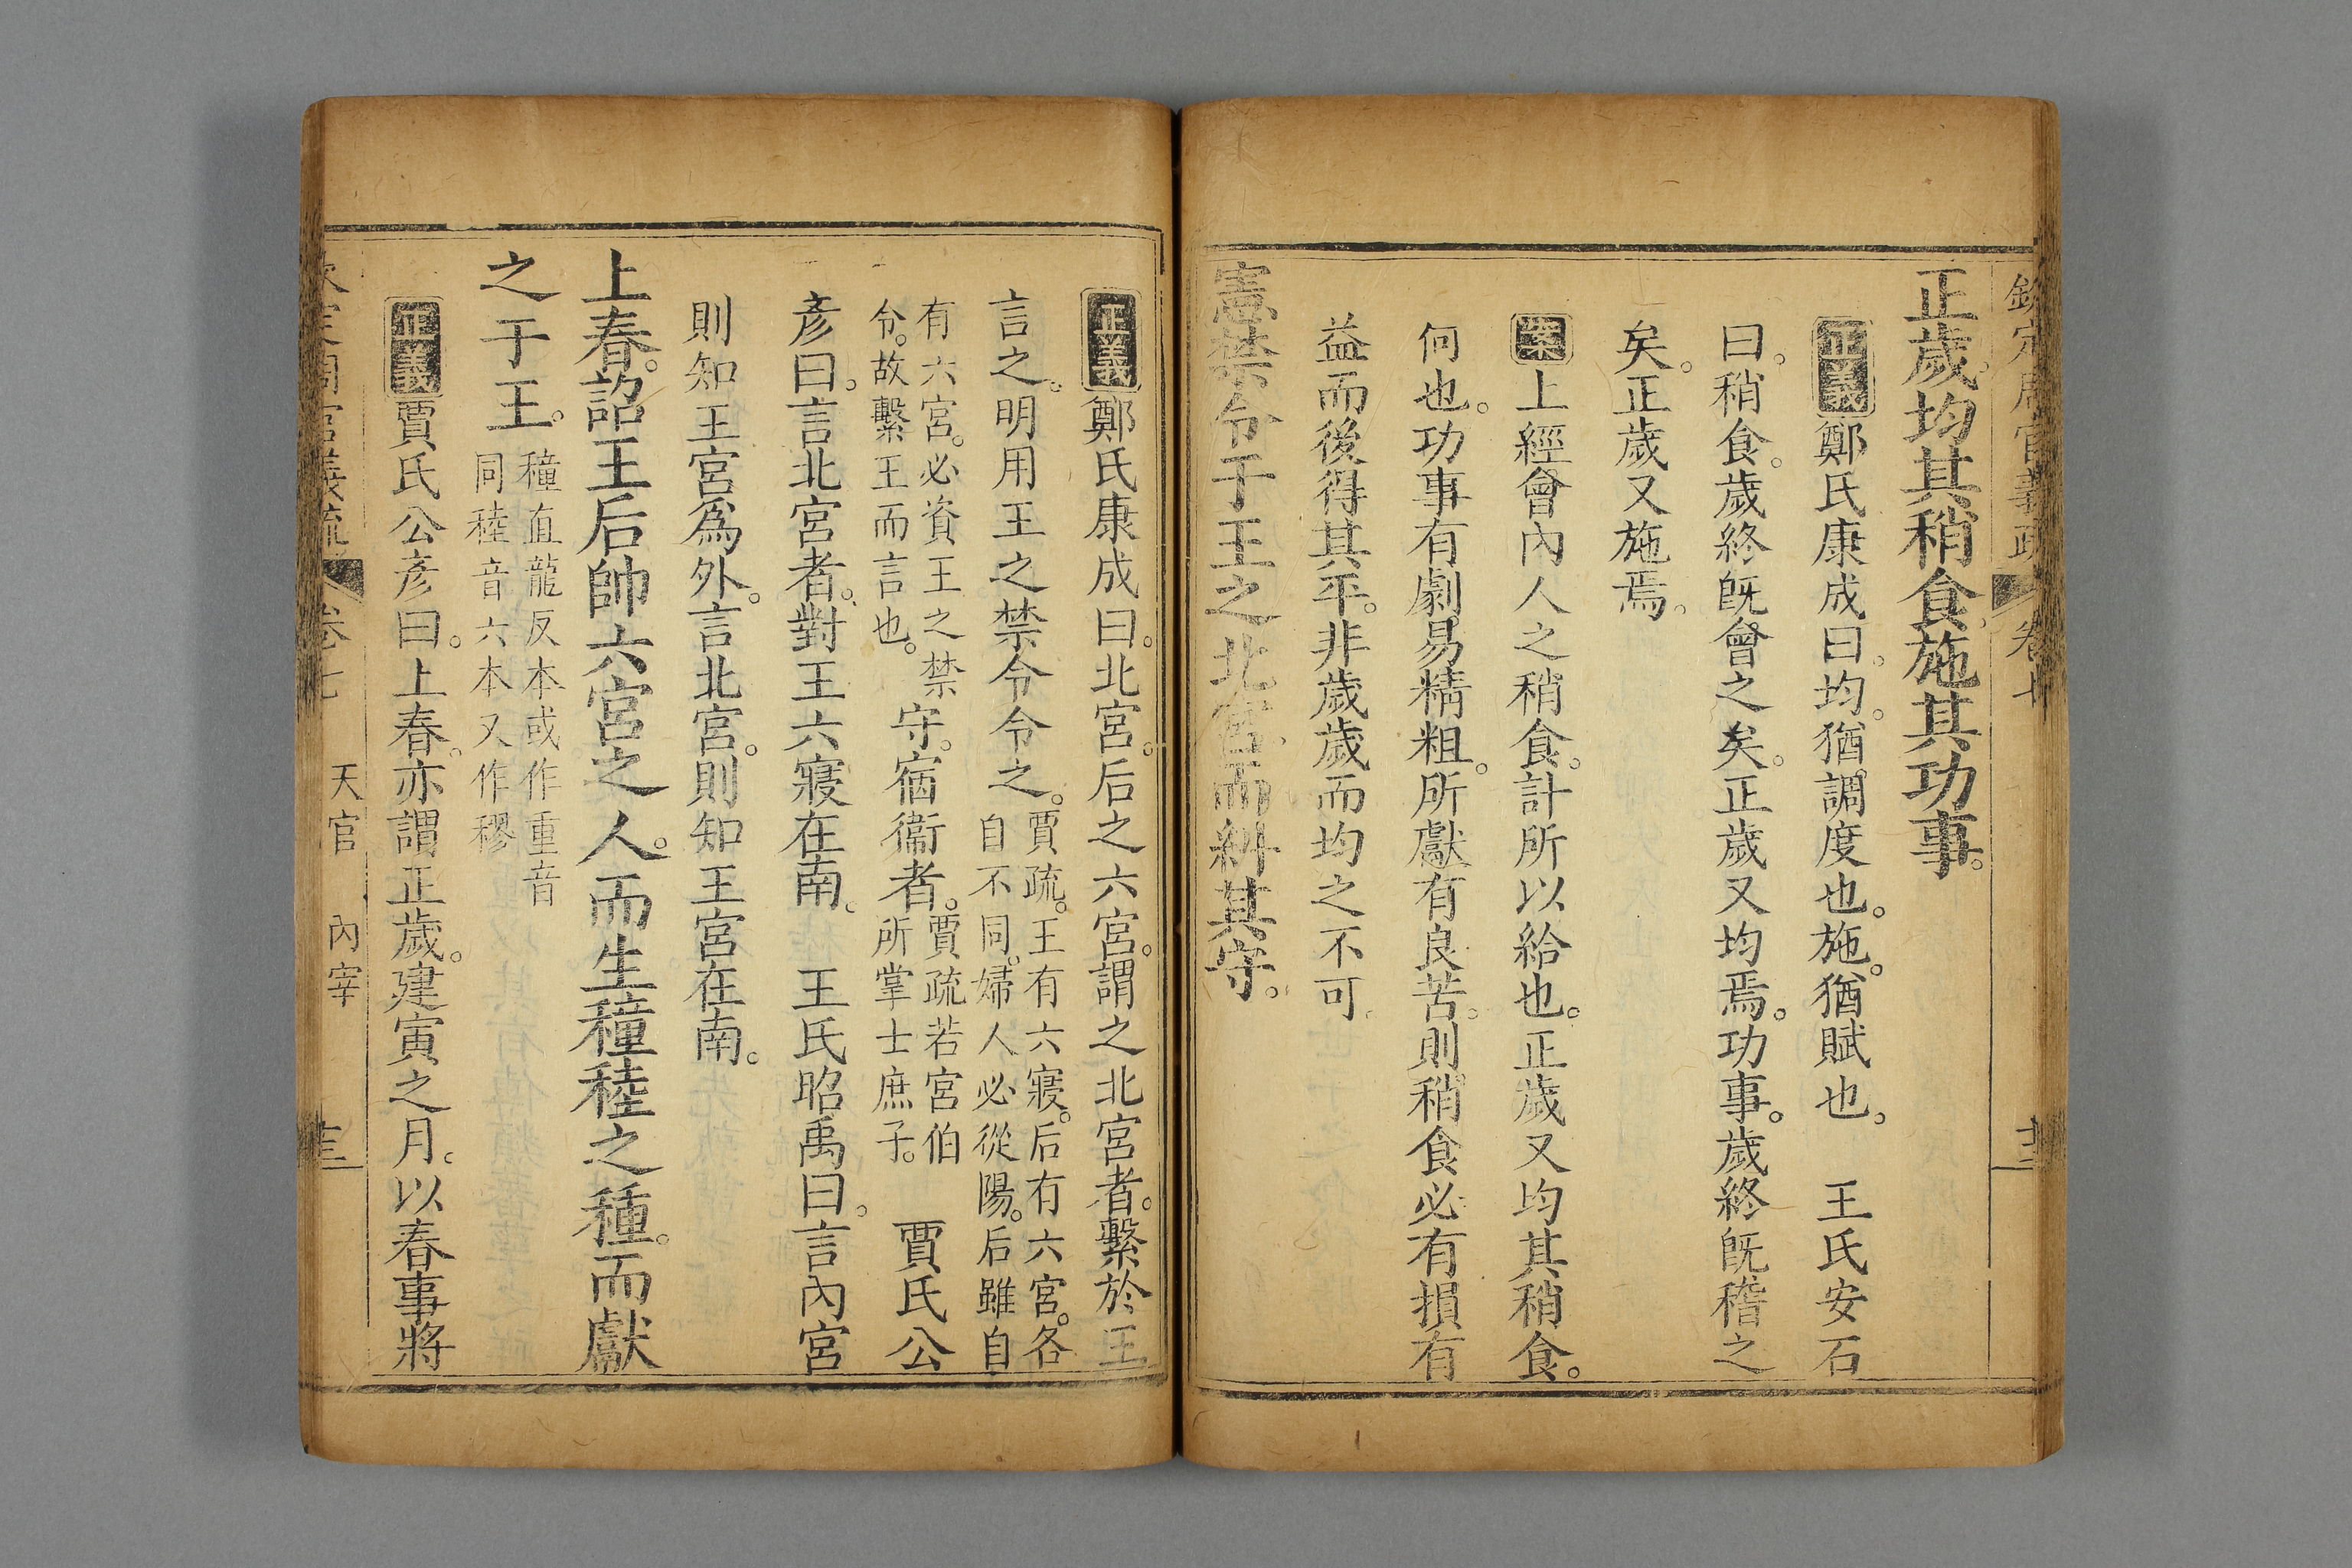 欽定周官義疏 卷七
正歲。均其稍食。施其功事。
正義 鄭氏康成曰。均。猶調度也。施。猶賦也。 王氏安石
曰。稍食。歲終旣會之矣。正歲又均焉。功事。歲終旣稽之
矣。正歲又施焉。
案 上經會內人之稍食。計所以給也。正歲又均其稍食。
何也。功事有劇易精粗。所獻有良苦。則稍食必有損有
益而後得其平。非歲歲而均之不可。
憲禁令于王之北宮。而糾其守。
正義 鄭氏康成曰。北宮。后之六宮。謂之北宮者。繫於王
言之。明用王之禁令令之。
賈疏。王有六寢。后有六宮。各
自不同。婦人必從陽。后雖自
有六宮。必資王之禁
令。故繫王而言也。
守。宿衞者。
賈疏若宮伯
所掌士庶子。
賈氏公
彥曰。言北宮者。對王六寢在南。 王氏昭禹曰。言內宮
則知王宮爲外。言北宮。則知王宮在南。
上春。詔王后帥六宮之人。而生穜稑之種。而獻
之于王。
穜直龍反本或作重音
同稑音六本又作穋
正義 賈氏公彥曰。上春。亦謂正歲。建寅之月。以春事將
欽定周官義疏 卷七 天官 內宰